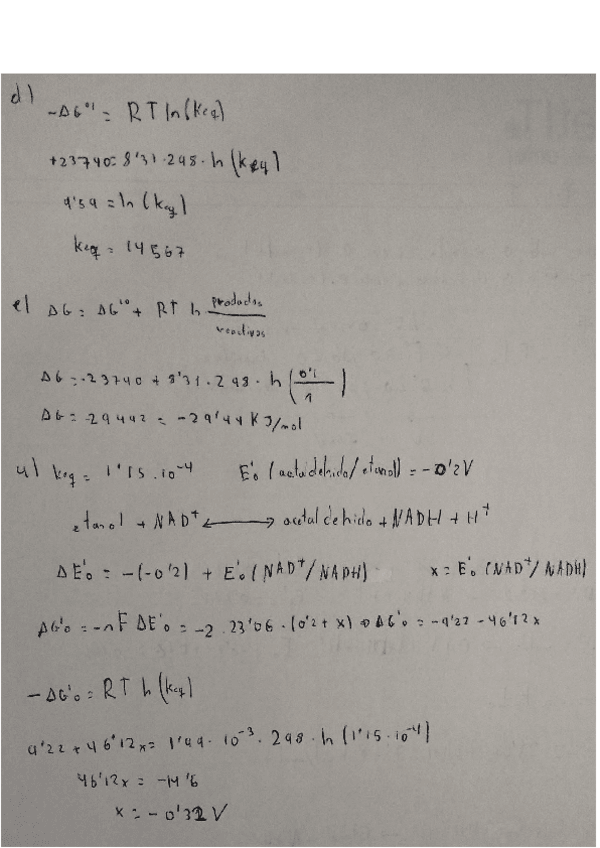 d)
-ΔG°' = RT ln(Keq)
+23740 = 8'31·298·ln(Keq)
9'59 = ln(Keq)
Keq = 14567
e) ΔG = ΔG'° + RT ln productos/reactivos
ΔG = -23740 + 8'31·298·ln(0'1/1)
ΔG = -29442 = -29'44 KJ/mol
4) Keq = 1'15·10⁻⁴ E'₀ (acetaldehido/etanol) = -0'2V
etanol + NAD⁺ ⟷ acetaldehido + NADH + H⁺
ΔE'₀ = -(-0'2) + E'₀ (NAD⁺/NADH) x = E'₀ (NAD⁺/NADH)
ΔG'₀ = -nFΔE'₀ = -2·23'06·(0'2+x) ⇒ ΔG'₀ = -9'22 - 46'12x
-ΔG'₀ = RT ln(Keq)
9'22 + 46'12x = 1'99·10⁻³·298·ln(1'15·10⁻⁴)
46'12x = -14'6
x = -0'32 V